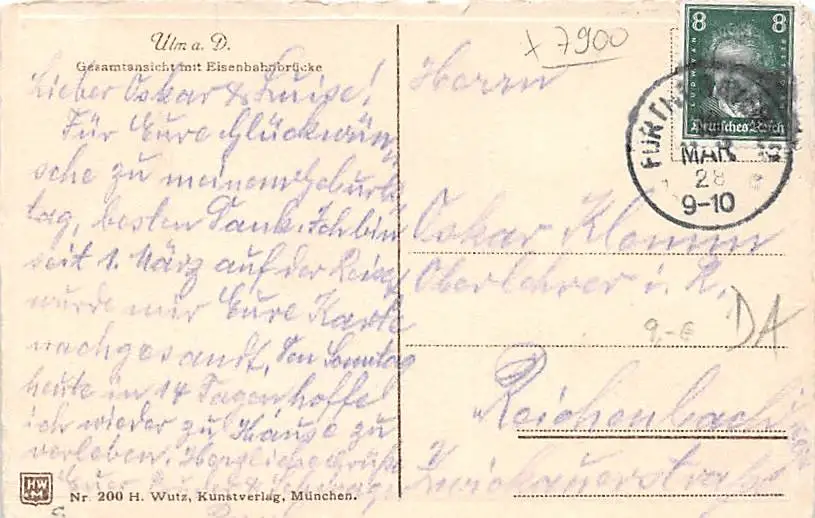 Ulm a. D.
Gesamtansicht mit Eisenbahnbrücke
Lieber Oskar & Luise!
Für Eure Glückwün-
sche zu meinem Geburts
tag, besten Dank. Ich bin
seit 1. März auf der Reise
wurde mir Eure Karte
nachgesandt, Den Sonntag
heute in 14 Tagen hoffe
ich wieder zu Hause zu
verleben. Herzliche Grüße
Euer
Nr. 200 H. Wutz, Kunstverlag, München.
HW
M
+ 7900
8 8
Deutsches Reich
MAR
28
9-10
Herrn
Oskar Klemm
Oberlehrer i. R.
9,- €
DA
Reichenbach i.
Zwickauerstraße